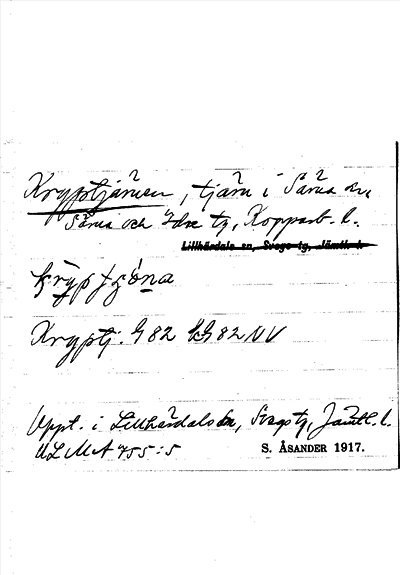 Kryptjärnen, tjärn i Särna sn,
Särna och Idre tg, Kopparb. l.
Lillhärdals sn, Svegs tg, Jämtl. l.
Kryptj. G82 G82NV
Uppt. i Lillhärdals sn, Svegs tg, Jämtl. l.
ULMA 755:5 S. ÅSANDER 1917.